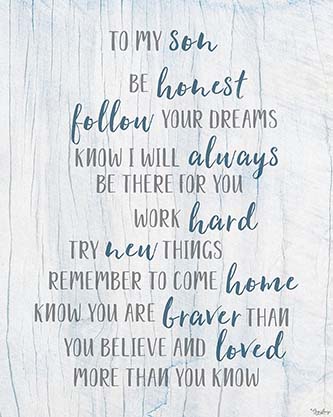 TO MY son
BE honest
follow YOUR DREAMS
KNOW I WILL always
BE THERE FOR YOU
WORK hard
TRY new THINGS
REMEMBER TO COME home
KNOW YOU ARE braver THAN
YOU BELIEVE AND loved
MORE THAN YOU KNOW